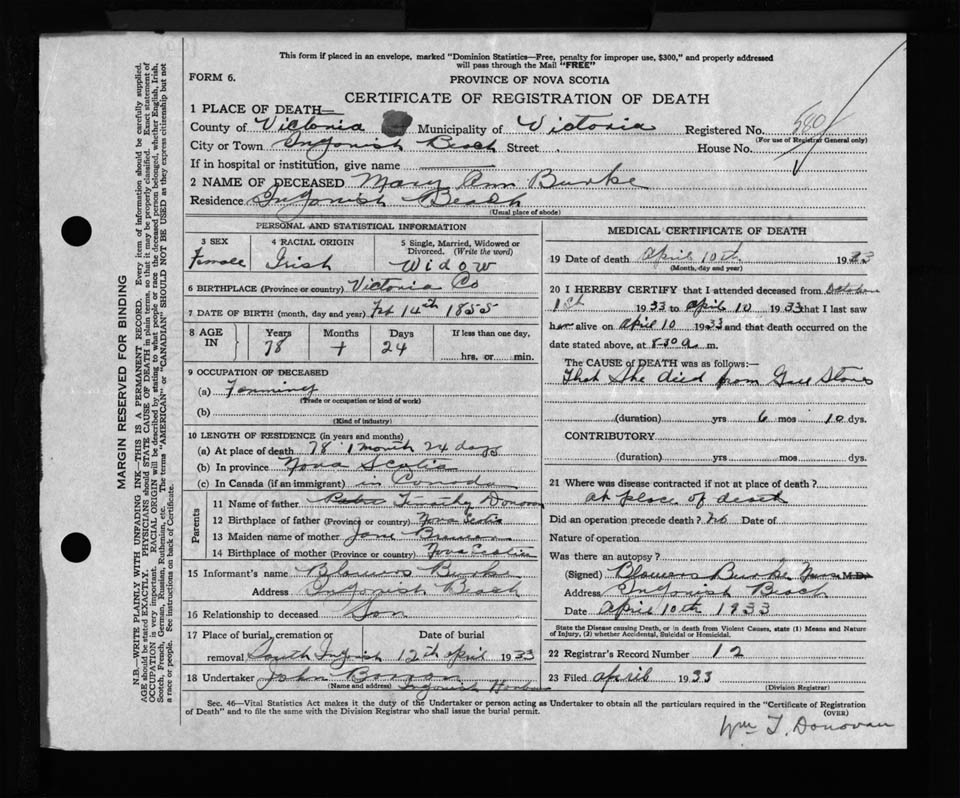 This form if placed in an envelope, marked "Dominion Statistics—Free, penalty for improper use, $300," and properly addressed
will pass through the Mail "FREE"
FORM 6.
PROVINCE OF NOVA SCOTIA
CERTIFICATE OF REGISTRATION OF DEATH
1 PLACE OF DEATH—
County of Victoria Municipality of Victoria Registered No. 540
(For use of Registrar General only)
City or Town Ingonish Beach Street House No.
If in hospital or institution, give name
2 NAME OF DECEASED Mary Ann Burke
Residence Ingonish Beach
(Usual place of abode)
MARGIN RESERVED FOR BINDING
N.B.—WRITE PLAINLY WITH UNFADING INK—THIS IS A PERMANENT RECORD. Every item of information should be carefully supplied.
AGE should be stated EXACTLY. PHYSICIANS should STATE CAUSE OF DEATH in plain terms, so that it may be properly classified. Exact statement of
OCCUPATION is very important. RACIAL ORIGIN will be described by stating to what people or race the deceased person belonged, whether English, Irish,
Scotch, French, German, Russian, Ruthenian, etc. The terms "AMERICAN" or "CANADIAN" SHOULD NOT BE USED as they express citizenship but not
a race or people. See instructions on back of Certificate.
PERSONAL AND STATISTICAL INFORMATION
3 SEX
Female
4 RACIAL ORIGIN
Irish
5 Single, Married, Widowed or
Divorced. (Write the word)
Widow
6 BIRTHPLACE (Province or country) Victoria Co
7 DATE OF BIRTH (month, day and year) Feb 14th 1855
8 AGE
IN
Years Months Days If less than one day,
78 1 24
hrs, or min.
9 OCCUPATION OF DECEASED
(a) Farming
(Trade or occupation or kind of work)
(b)
(Kind of industry)
10 LENGTH OF RESIDENCE (in years and months)
(a) At place of death 78 1 month 24 days
(b) In province Nova Scotia
(c) In Canada (if an immigrant) in Canada
Parents
11 Name of father Timothy
12 Birthplace of father (Province or country) Nova Scotia
13 Maiden name of mother Jane
14 Birthplace of mother (Province or country) Nova Scotia
15 Informant's name Blowers Burke
Address Ingonish Beach
16 Relationship to deceased Son
17 Place of burial, cremation or Date of burial
removal South Ingonish 12th April 1933
18 Undertaker John
(Name and address) Ingonish Harbour
MEDICAL CERTIFICATE OF DEATH
19 Date of death April 10th 1933
(Month, day and year)
20 I HEREBY CERTIFY that I attended deceased from October
1st 1933 to April 10 1933 that I last saw
her alive on April 10 1933 and that death occurred on the
date stated above, at 8-30 a. m.
The CAUSE OF DEATH was as follows:
That She died from Gall Stones
(duration) yrs 6 mos 10 dys.
CONTRIBUTORY
(duration) yrs mos dys.
21 Where was disease contracted if not at place of death?
at place of death
Did an operation precede death? No Date of
Nature of operation
Was there an autopsy?
(Signed) Blowers Burke M.D.
Address Ingonish Beach
Date April 10th 1933
State the Disease causing Death, or in death from Violent Causes, state (1) Means and Nature
of Injury, (2) whether Accidental, Suicidal or Homicidal.
22 Registrar's Record Number 12
23 Filed April 1933
(Division Registrar)
Sec. 46—Vital Statistics Act makes it the duty of the Undertaker or person acting as Undertaker to obtain all the particulars required in the "Certificate of Registration
of Death" and to file the same with the Division Registrar who shall issue the burial permit.
(OVER)
Wm T. Donovan